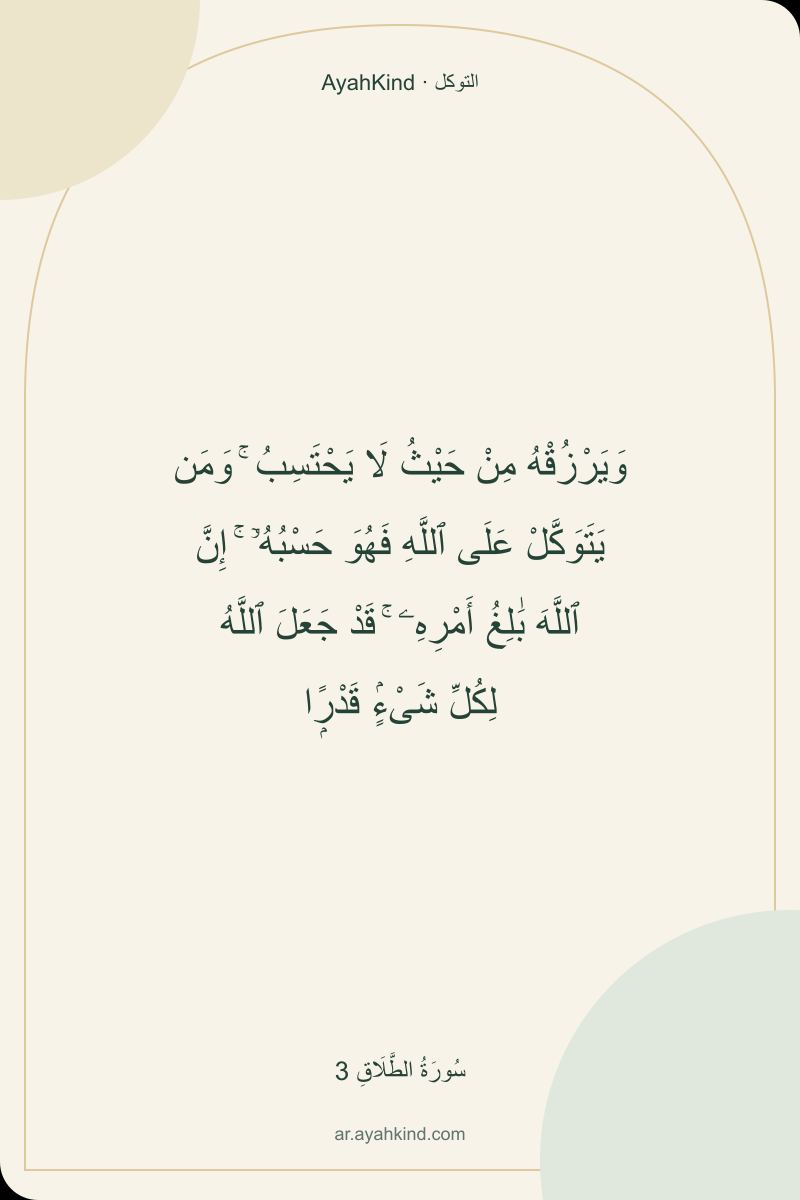 AyahKind · التوكل
وَيَرْزُقْهُ مِنْ حَيْثُ لَا يَحْتَسِبُ ۚ وَمَن
يَتَوَكَّلْ عَلَى ٱللَّهِ فَهُوَ حَسْبُهُۥٓ ۚ إِنَّ
ٱللَّهَ بَٰلِغُ أَمْرِهِۦ ۚ قَدْ جَعَلَ ٱللَّهُ
لِكُلِّ شَىْءٍۢ قَدْرًۭا
سُورَةُ الطَّلَاقِ 3
ar.ayahkind.com